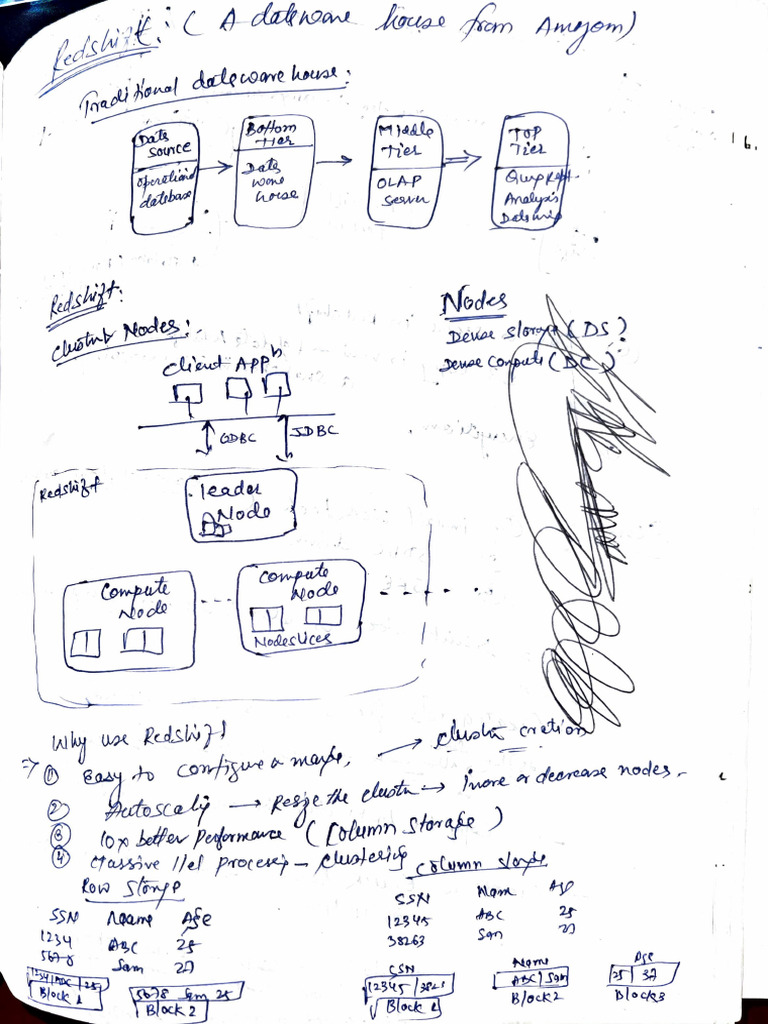 Redshift: (A dateware house from Amazom)
Traditional dateware house:
Data Source
Operational datebase
Bottom Tier
Data ware house
Middle Tier
OLAP Server
TOP Tier
Analysis
16.
Redshift:
Cluster Nodes:
Nodes
Dense Storage (DS)
Dense Compute (DC)
Client Appn
ODBC JDBC
Redshift
Leader Node
Compute Node
Compute Node
Nodeslices
Why use Redshift
⇒ ① Easy to configure a → Cluster cration
② Autoscalig → Resize the cluster → Incre or decrease nodes.
③ 10x better performance (Column Storage)
④ Massive llel procesig - clustering
Row Storage
Column storage
SSN Name Age
1234 ABC 25
5678 Sam 27
SSN Name Age
12345 ABC 25
38263 Sam 27
1234 ABC 25
Block 1
5678 Sam 25
Block 2
SSN
12345
Block 1
Name
ABC Sam
Block2
Age
25 37
Block3